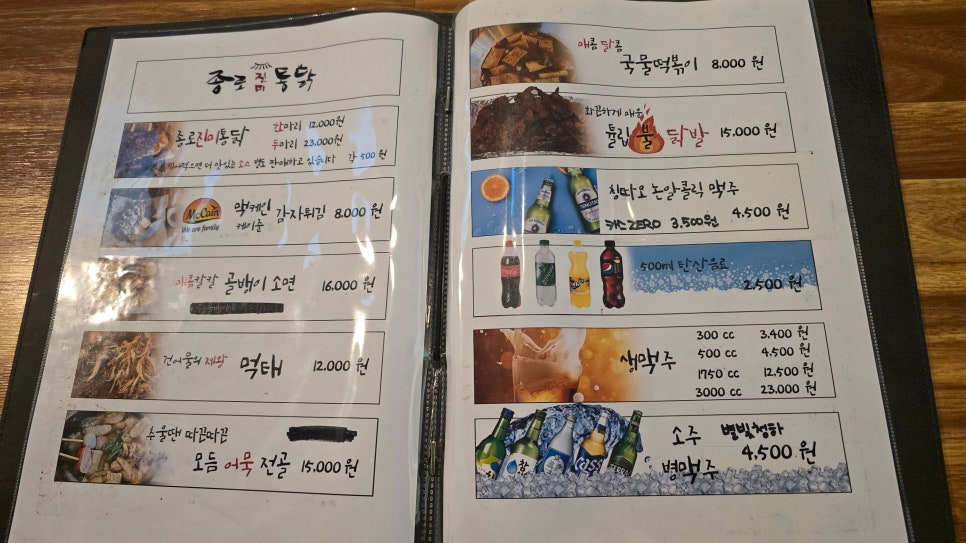 종로 찜통닭
종로진미통닭
한마리 12.000원
두마리 23.000원
더 맛있는 소스 별도 판매하고 있습니다 각 500원
McCain
We are family
맥케인
케이준
감자튀김 8.000 원
매콤칼칼 골뱅이 소면 16.000 원
건어물의 제왕 먹태 12.000 원
추울땐 따끈따끈
모듬 어묵 전골 15.000 원
매콤 달콤
국물떡볶이 8.000 원
화끈하게 매운
튤립 불 닭발 15.000 원
칭따오 논알콜릭 맥주 4.500 원
카스ZERO 3.500원
500ml 탄산음료
2.500 원
생맥주
300 cc 3.400 원
500 cc 4.500 원
1750 cc 12.500 원
3000 cc 23.000 원
소주 별빛청하
병맥주 4.500 원